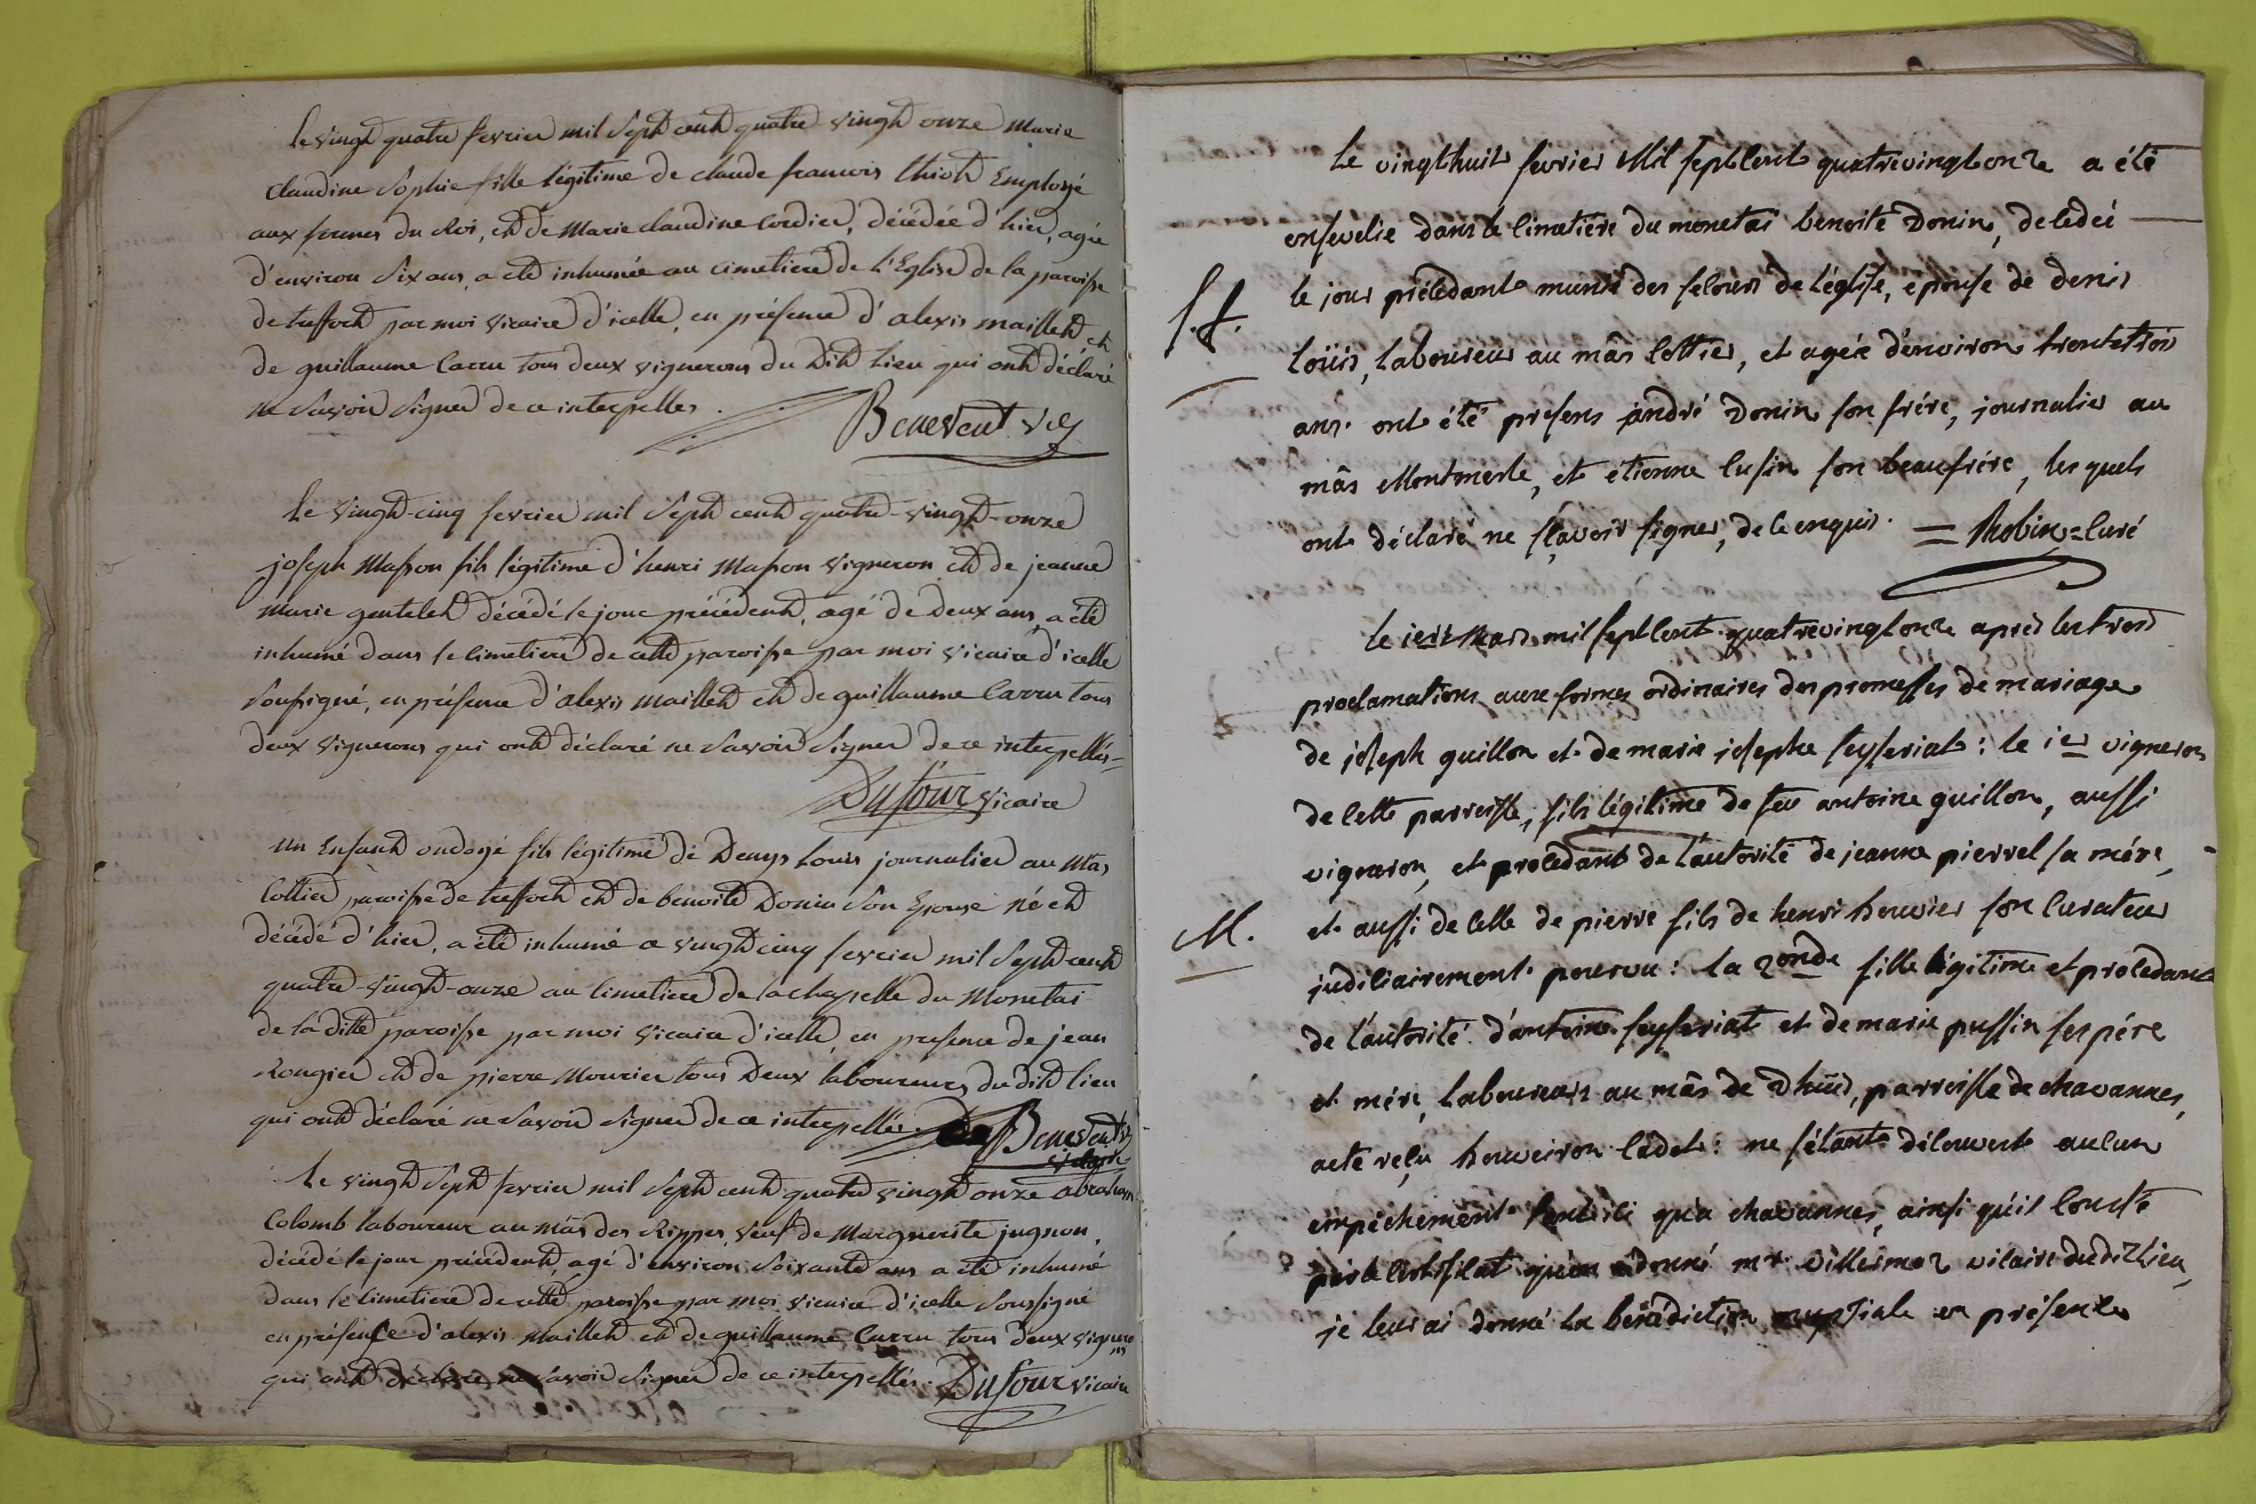 le vingt quatre fevrier mil sept cent quatre vingt onze marie
claudine sophie fille légitime de claude francois Chiot Employé
aux fermes du Roi, et de marie claudine Cordier, décédée d'hier, agée
d'environ six ans, a été inhumée au cimetiere de l'Eglise de la paroisse
de treffort par moi vicaire d'icelle, en présence d'alexis maillet, et
de guillaume Carru tous deux vignerons du dit lieu qui ont déclaré
ne savoir signer de ce interpellés.
Benevent
Le vingt-cinq fevrier mil sept cent quatre-vingt-onze
joseph Masson fils légitime d'henri Masson vigneron et de jeanne
marie gentelet décédé le jour précédent, agé de deux ans, a été
inhumé dans le cimetiere de cette paroisse par moi vicaire d'icelle
soussigné, en présence d'alexis maillet et de guillaume Carru tous
deux vignerons qui ont déclaré ne savoir signer de ce interpellés=
Dufour vicaire
un Enfant ondoyé fils légitime de Denys Louis journalier au Mas
Cottier paroisse de treffort et de benoite Donin son Epouse né et
décédé d'hier, a été inhumé ce vingt cinq fevrier mil sept cent
quatre-vingt-onze au cimetiere de la chapelle du Monetai
de la ditte paroisse par moi vicaire d'icelle, en presence de jean
Rougier et de pierre Mourier tous deux laboureurs du dit lieu
qui ont déclaré ne savoir signer de ce interpellés.
Benevent
Le vingt sept fevrier mil sept cent quatre vingt onze abraham
Colomb laboureur au mâs des Rippes, veuf de Marguerite jugnon,
décédé le jour précédent, agé d'environ soixante ans a été inhumé
dans le cimetiere de cette paroisse par moi vicaire d'icelle soussigné
en présence d'alexis maillet et de guillaume Carru tous deux vignerons
qui ont déclaré ne savoir signer de ce interpellés. Dufour vicaire
Le vingthuit fevrier Mil septcent quatrevingtonze a été
ensevelie dans le cimetiére du monetai benoite Donin, decedeé
le jour précédant munie des secours de l'église, epouse de denis
S.f.
Loüis, laboureur au mâs Cottier, et agée d'environ trentetrois
ans. ont été presens andré Donin son frére, journalier au
mâs Montmerle, et étienne Cusin son beaufrére, les quels
ont déclaré ne sçavoir signer, de ce enquis. = Robin = Curé
le ier Mars mil septcent quatrevingtonze aprés les trois
proclamations aux formes ordinaires des promesses de mariage
de joseph guillon et de marie josephe seyseriat: le ier vigneron
de cette parroisse, fils légitime de feu antoine guillon, aussi
vigneron, et procédant de l'autorité de jeanne pierrel sa mére,
M.
et aussi de celle de pierre fils de henri houvier son curateur
judiciairement pourvu: la 2onde fille légitime et procedant
de l'autorité d'antoine seyseriat et de marie pussin ses pére
et mére, laboureurs au mâs de dhuis, parroisse de chavannes,
acte reçu houveiron Cadet: ne s'étant découvert aucun
empéchement tant ici qu'a chavannes, ainsi qu'il conste
par le certificat qu'en a donné mr villermoz vicaire dudit lieu,
je leur ai donné la bénédiction nuptiale en présence